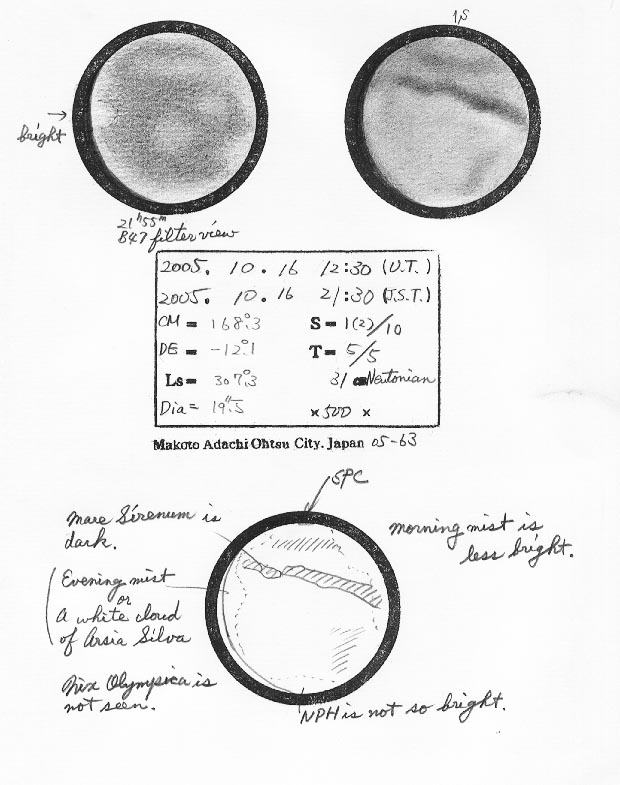 1,S
→
bright
21h55m
B47 filter view
2005. 10. 16 12:30 (U.T.)
2005. 10. 16 21:30 (J.S.T.)
CM = 168°.3 S = 1(2)/10
DE = -12°.1 T = 5/5
Ls = 307°.3 31 cm Newtonian
Dia = 19".5 ×500 ×
Makoto Adachi Ohtsu City. Japan 05-63
SPC
Mare Sirenum is
dark.
morning mist is
less bright.
Evening mist
or
A white cloud
of Arsia Silva
Nix Olympica is
not seen.
NPH is not so bright.